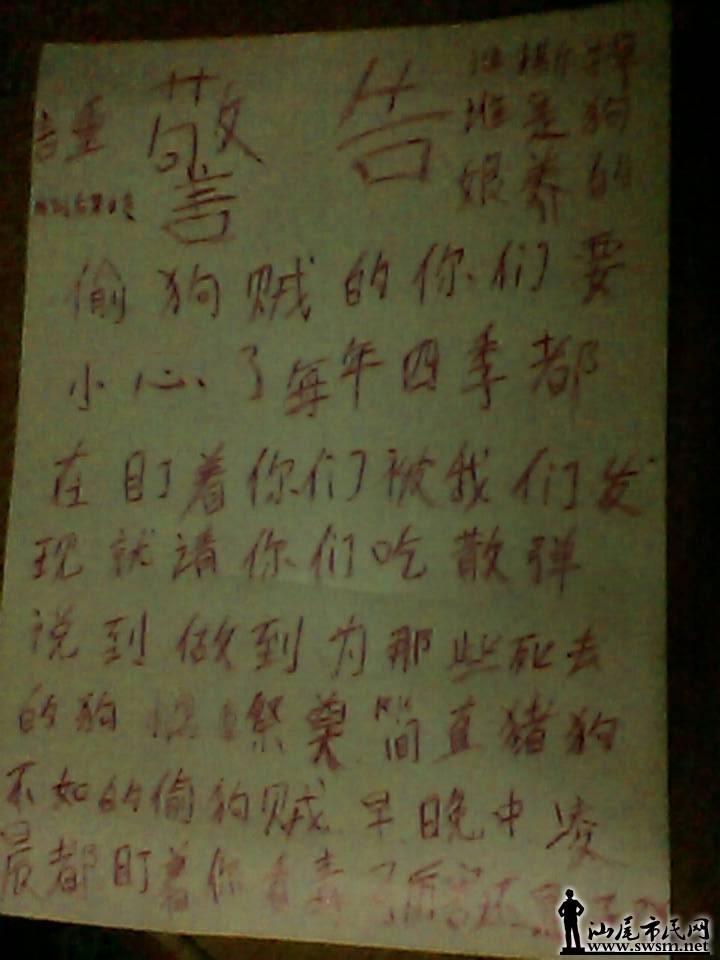 警告
谁撕掉
谁是狗
娘养的
偷狗贼的你们要
小心了每年四季都
在盯着你们被我们发
现就请你们吃散弹
说到做到为那些死去
的狗祭奠简直猪狗
不如的偷狗贼早晚中凌
晨都盯着你看
汕尾市民网
www.swsm.net